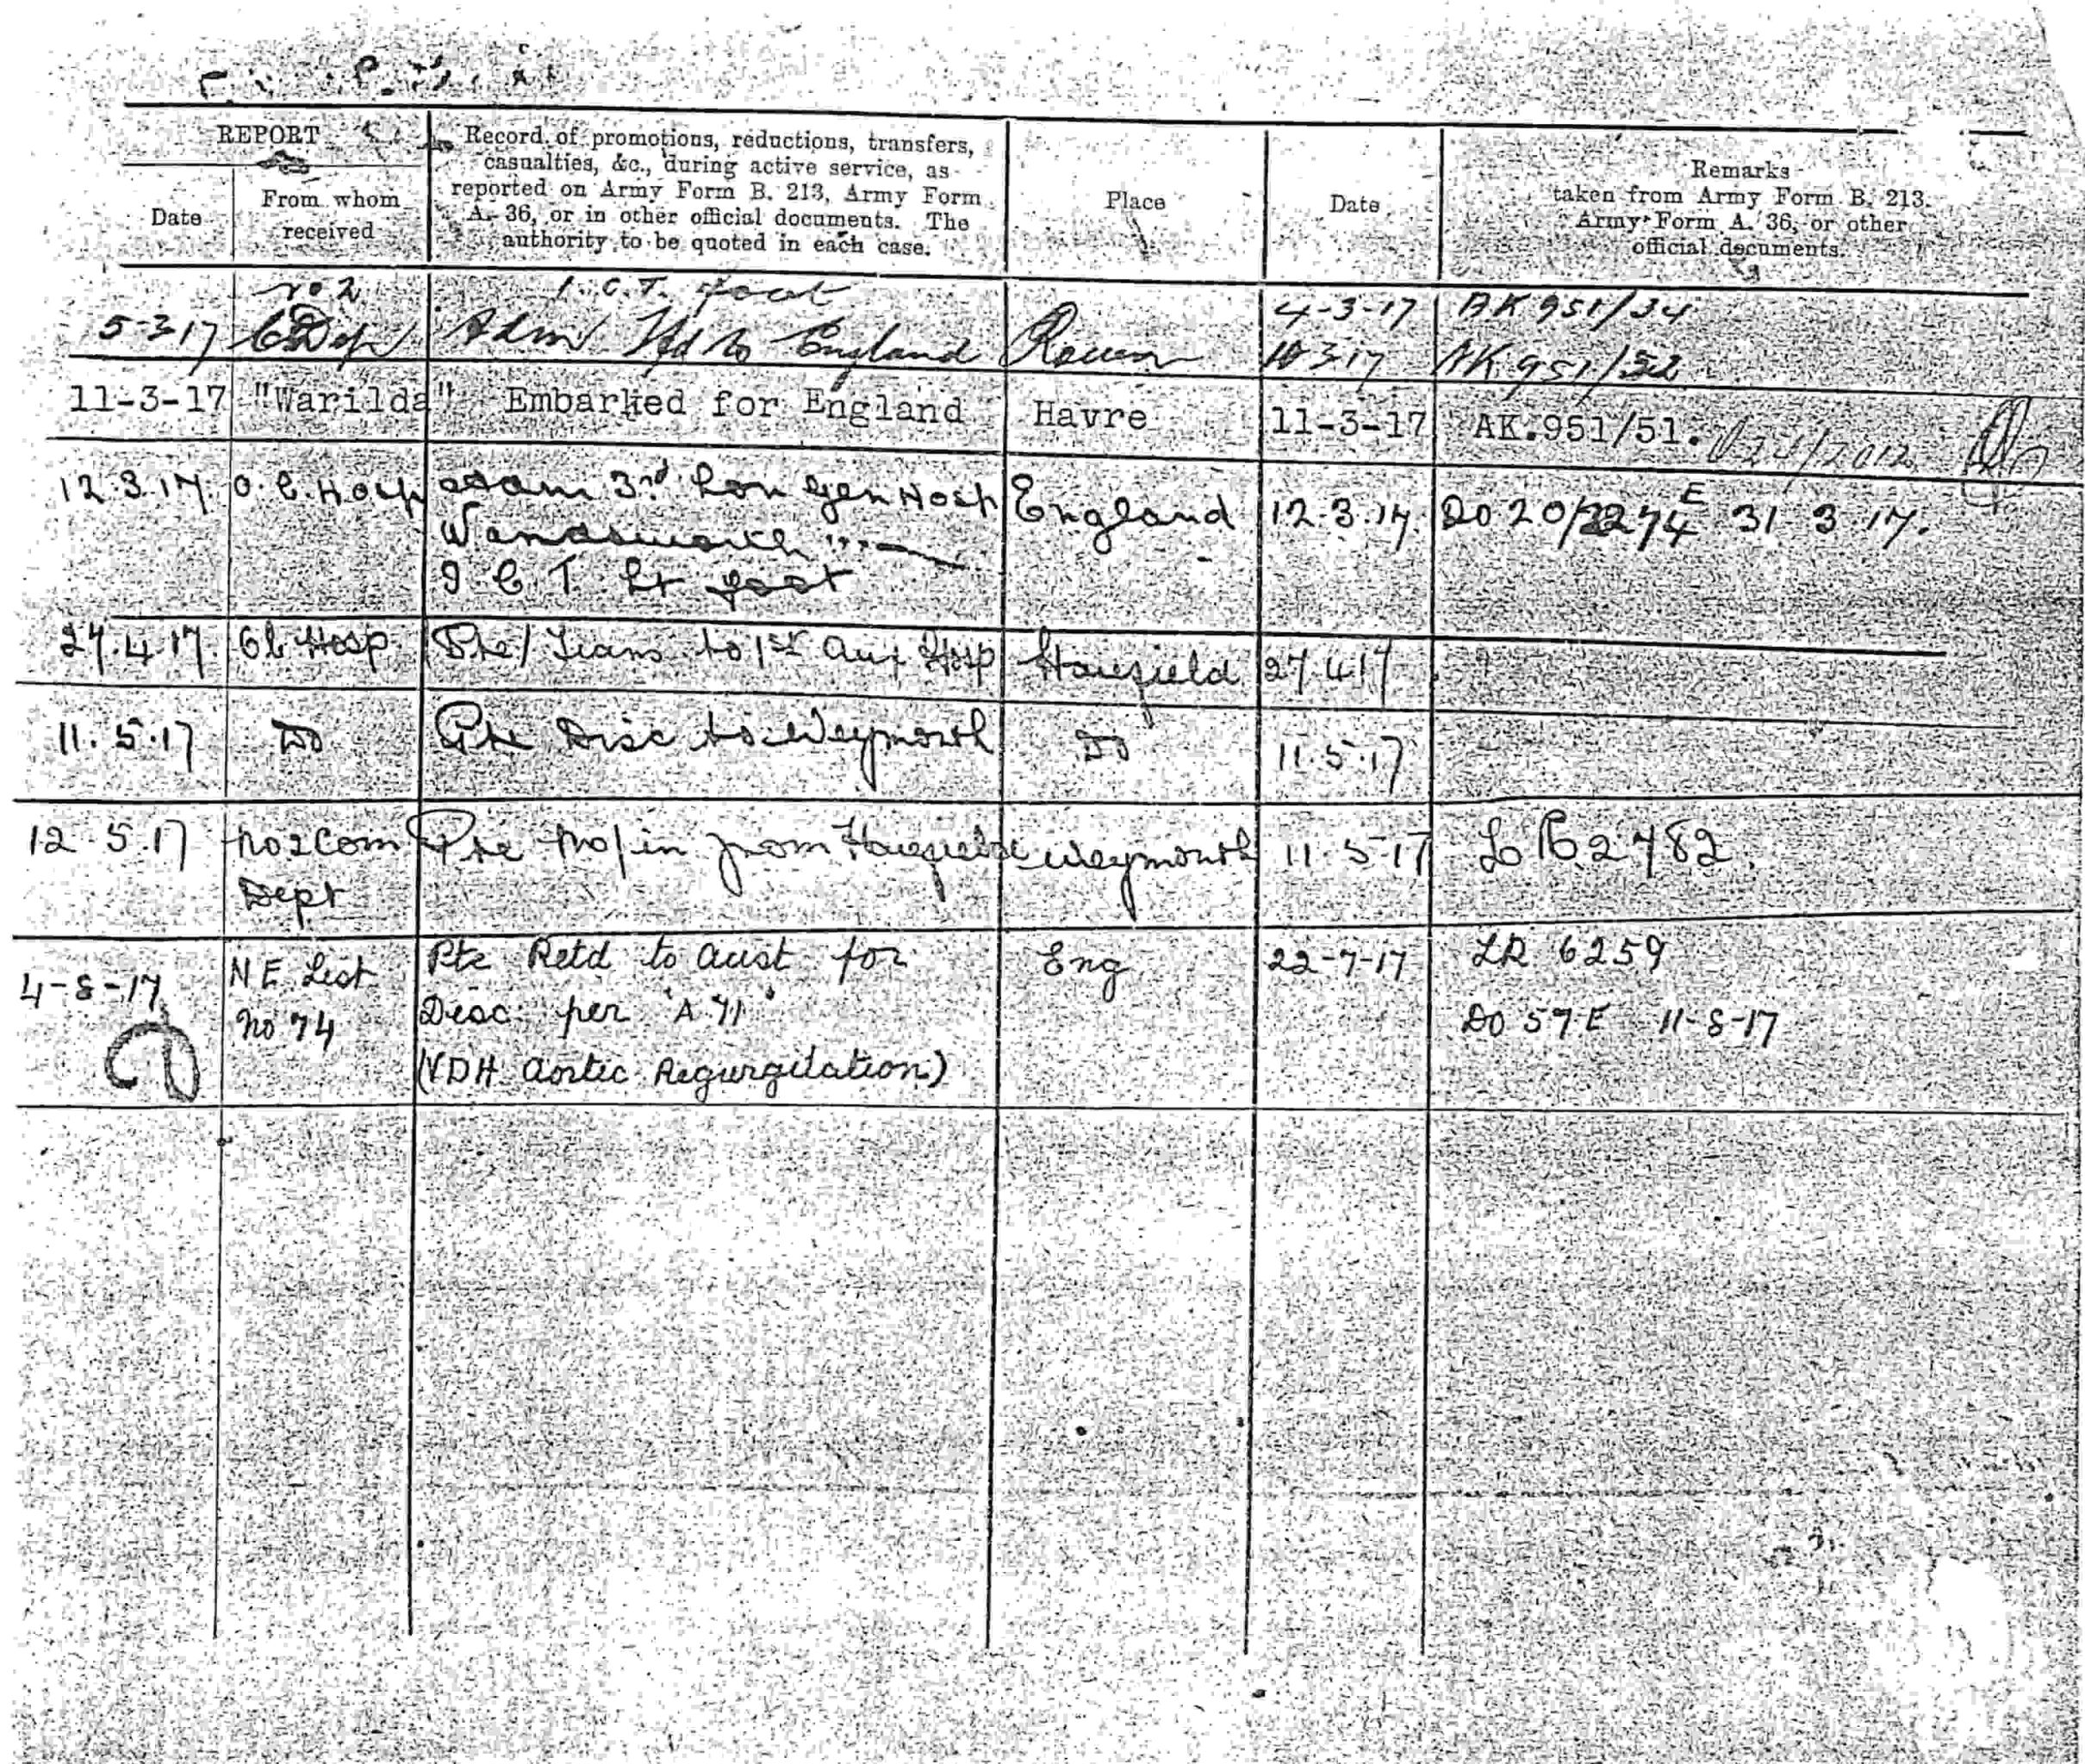 REPORT
Date
From whom
received
Record of promotions, reductions, transfers,
casualties, &c., during active service, as
reported on Army Form B. 213, Army Form
A. 36, or in other official documents. The
authority to be quoted in each case.
Place
Date
Remarks
taken from Army Form B. 213.
Army Form A. 36, or other
official documents.
No 2 I.C.T. foot 4-3-17 AK 951/34
5-3-17 Adm to England Rouen 10 3 17 AK 951/52
11-3-17 "Warilda" Embarked for England Havre 11-3-17 AK.951/51.
12.3.17. O.C. Hosp Adam 3rd Lon Gen Hosp England 12.3.17. DO 20/2274E 31 3 17.
Wandsworth
I C T Lt foot
27.4.17. Hosp Pte/Trans to 1st Aux Hosp Harefield 27.4.17
11.5.17 Do Pte Disc to Weymouth Do 11.5.17
12.5.17 No 2 Com Pte M/in from Harefield Weymouth 11-5-17 2782.
Dept
4-8-17 N E List Pte Retd to Aust for Eng 22-7-17 LR 6259
No 74 Disc: per "A 71" DO 57E 11-8-17
(VDH Aortic Regurgitation)